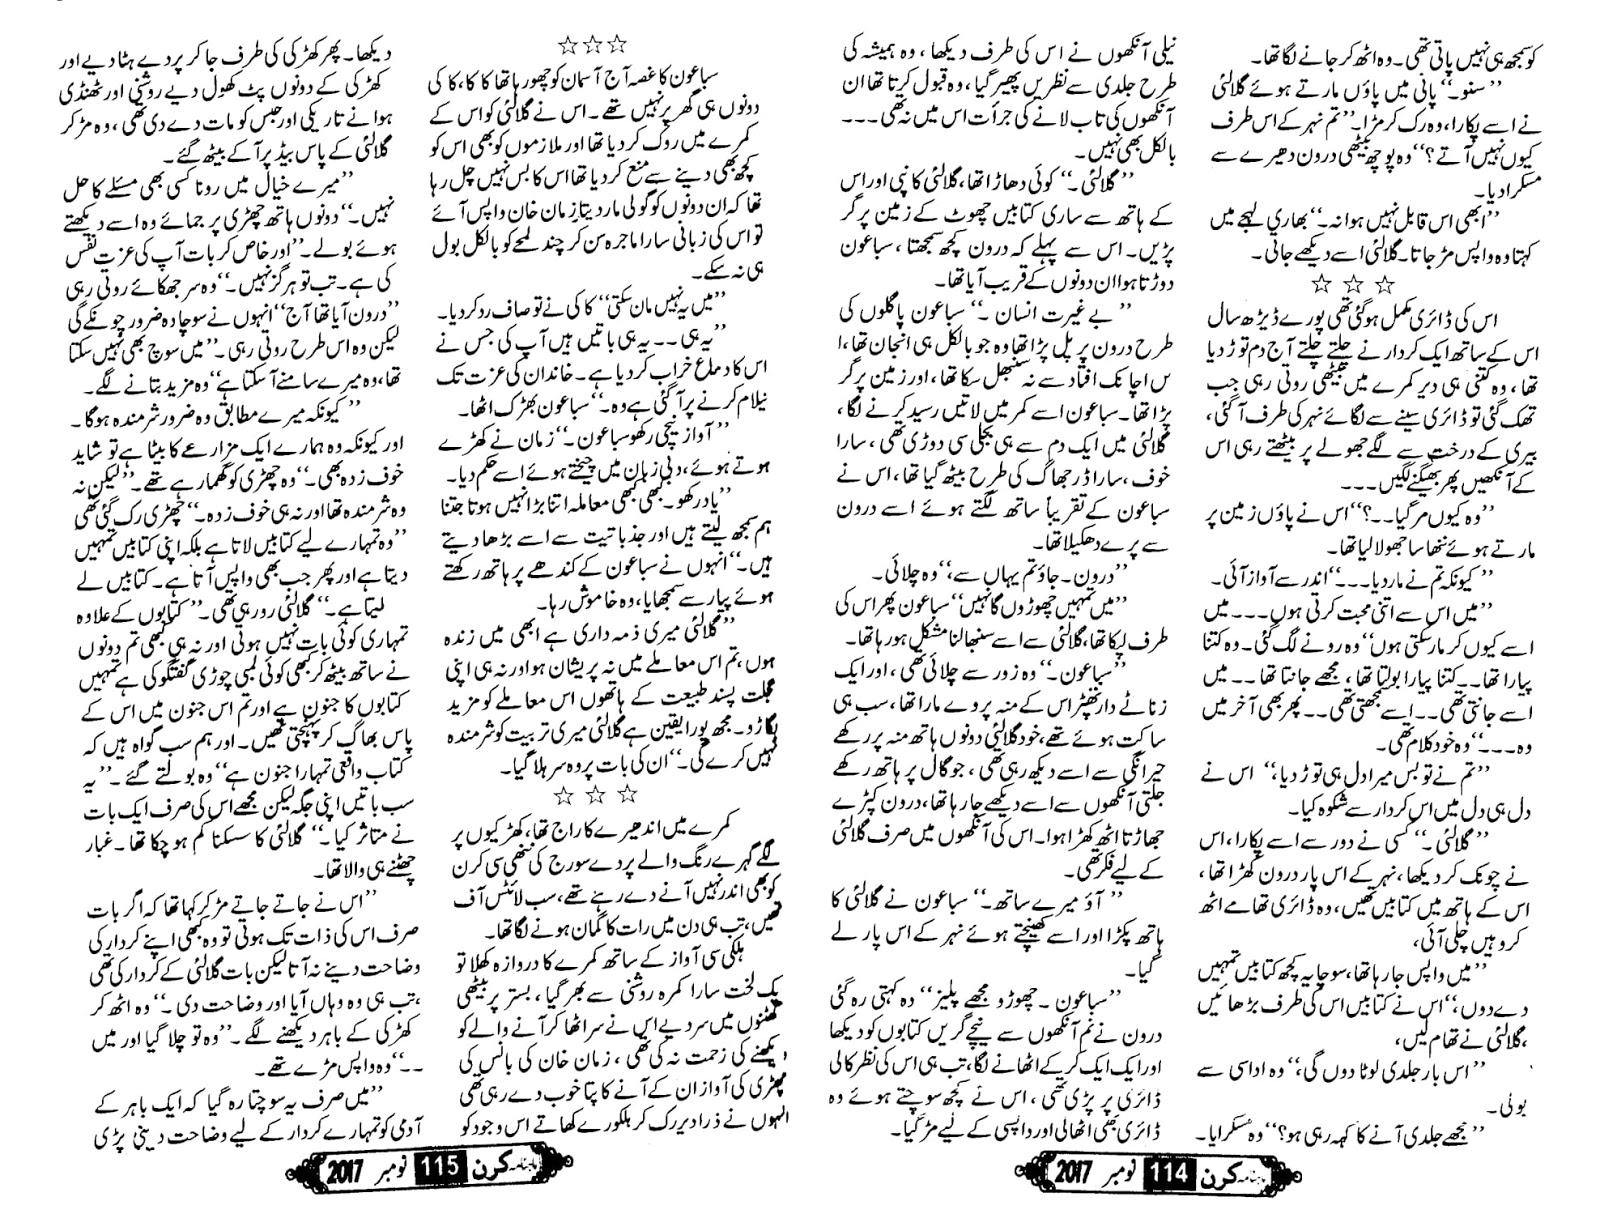 کو سمجھ ہی نہیں پاتی تھی۔ وہ اٹھ کر جانے لگا تھا۔
’’سنو۔‘‘ پانی میں پاؤں مارتے ہوئے گلالئی
نے اسے پکارا، وہ رک کر مڑا۔ ’’تم نہر کے اس طرف
کیوں نہیں آتے؟‘‘ وہ پوچھ بیٹھی درون دھیرے سے
مسکرا دیا۔
’’ابھی اس قابل نہیں ہوا نہ۔‘‘ بھاری لہجے میں
کہتا وہ واپس مڑ جاتا۔ گلالئی اسے دیکھے جاتی۔
☆ ☆ ☆
اس کی ڈائری مکمل ہوگئی تھی پورے ڈیڑھ سال
اس کے ساتھ ایک کردار نے چلتے چلتے آج دم توڑ دیا
تھا، وہ کتنی ہی دیر کمرے میں بیٹھی روتی رہی جب
تھک گئی تو ڈائری سینے سے لگائے نہر کی طرف آگئی،
بیری کے درخت سے لگے جھولے پر بیٹھتے رہی اس
کے آنکھیں پھر بھیگنے لگیں۔۔۔
’’وہ کیوں مر گیا۔۔؟‘‘ اس نے پاؤں زمین پر
مارتے ہوئے ننھا سا جھولا لیا تھا۔
’’کیونکہ تم نے مار دیا۔۔۔‘‘ اندر سے آواز آئی۔
’’میں اس سے اتنی محبت کرتی ہوں۔۔۔ میں
اسے کیوں کر مار سکتی ہوں‘‘ وہ رونے لگ گئی۔ وہ کتنا
پیارا تھا۔۔ کتنا پیارا بولتا تھا، مجھے جانتا تھا۔۔ میں
اسے جانتی تھی۔۔ اسے سمجھتی تھی۔۔ پھر بھی آخر میں
وہ۔۔۔‘‘ وہ خود کلام تھی۔
’’تم نے تو بس میرا دل ہی توڑ دیا،‘‘ اس نے
دل ہی دل میں اس کردار سے شکوہ کیا۔
’’گلالئی۔‘‘ کسی نے دور سے اسے پکارا، اس
نے چونک کر دیکھا، نہر کے اس پار درون کھڑا تھا،
اس کے ہاتھ میں کتابیں تھیں، وہ ڈائری تھامے اٹھ
کر وہیں چلی آئی،
’’میں واپس جا رہا تھا، سوچا یہ کچھ کتابیں تمہیں
دے دوں،‘‘ اس نے کتابیں اس کی طرف بڑھائیں
، گلالئی نے تھام لیں،
’’اس بار جلدی لوٹا دوں گی،‘‘ وہ اداسی سے
بولی۔
’’مجھے جلدی آنے کا کہہ رہی ہو؟‘‘ وہ مسکرایا۔
نیلی آنکھوں نے اس کی طرف دیکھا، وہ ہمیشہ کی
طرح جلدی سے نظریں پھیر گیا، وہ قبول کرتا تھا ان
آنکھوں کی تاب لانے کی جرأت اس میں نہ تھی۔۔۔
بالکل بھی نہیں۔
’’گلالئی۔‘‘ کوئی دھاڑا تھا، گلالئی کانپی اور اس
کے ہاتھ سے ساری کتابیں چھوٹ کے زمین پر گر
پڑیں۔ اس سے پہلے کہ درون کچھ سمجھتا، سباعون
دوڑتا ہوا ان دونوں کے قریب آیا تھا۔
’’بے غیرت انسان۔‘‘ سباعون پاگلوں کی
طرح درون پر پل پڑا تھا وہ جو بالکل ہی انجان تھا، ا
س اچانک افتاد سے نہ سنبھل سکا تھا، اور زمین پر گر
پڑا تھا۔ سباعون اسے کمر میں لاتیں رسید کرنے لگا،
گلالئی میں ایک دم سے ہی بجلی سی دوڑی تھی، سارا
خوف، سارا ڈر جھاگ کی طرح بیٹھ گیا تھا، اس نے
سباعون کے تقریباً ساتھ لگتے ہوئے اسے درون
سے پرے دھکیلا تھا۔
’’درون۔ جاؤ تم یہاں سے،‘‘ وہ چلائی۔
’’میں تمہیں چھوڑوں گا نہیں‘‘ سباعون پھر اس کی
طرف لپکا تھا، گلالئی سے اسے سنبھالنا مشکل ہو رہا تھا۔
’’سباعون۔‘‘ وہ زور سے چلائی تھی، اور ایک
زناٹے دار تھپڑ اس کے منہ پر دے مارا تھا، سب ہی
ساکت ہوئے تھے، خود گلالئی دونوں ہاتھ منہ پر رکھے
حیرانگی سے اسے دیکھ رہی تھی، جو گال پر ہاتھ رکھے
جلتی آنکھوں سے اسے دیکھے جا رہا تھا، درون کپڑے
جھاڑتا اٹھ کھڑا ہوا۔ اس کی آنکھوں میں صرف گلالئی
کے لیے فکر تھی۔
’’آؤ میرے ساتھ۔‘‘ سباعون نے گلالئی کا
ہاتھ پکڑا اور اسے کھینچتے ہوئے نہر کے اس پار لے
گیا۔
’’سباعون۔ چھوڑو مجھے پلیز‘‘ وہ کہتی رہ گئی
درون نے نم آنکھوں سے نیچے گریں کتابوں کو دیکھا
اور ایک ایک کر کے اٹھانے لگا، تب ہی اس کی نظر کالی
ڈائری پر پڑی تھی، اس نے کچھ سوچتے ہوئے وہ
ڈائری بھی اٹھالی اور واپسی کے لیے مڑ گیا۔
ماہنامہ کرن 114 نومبر 2017
☆☆☆
سباعون کا غصہ آج آسمان کو چھو رہا تھا کاکا، کاکی
دونوں ہی گھر پر نہیں تھے۔ اس نے گلالئی کو اس کے
کمرے میں روک کر دیا تھا اور ملازموں کو بھی اس کو
کچھ بھی دینے سے منع کر دیا تھا اس کا بس نہیں چل رہا
تھا کہ ان دونوں کو گولی مار دیتا زمان خان واپس آئے
تو اس کی زبانی سارا ماجرہ سن کر چند لمحے کو بالکل بول
ہی نہ سکے۔
’’میں یہ نہیں مان سکتی‘‘ کاکی نے تو صاف رد کر دیا۔
’’یہ ہی۔۔ یہ ہی باتیں ہیں آپ کی جس نے
اس کا دماغ خراب کر دیا ہے۔ خاندان کی عزت تک
نیلام کرنے پر آ گئی ہے وہ۔‘‘ سباعون بھڑک اٹھا۔
’’آواز نیچی رکھو سباعون۔‘‘ زمان نے کھڑے
ہوتے ہوئے، دبی زبان میں چیختے ہوئے اسے حکم دیا۔
’’یاد رکھو۔ کبھی کبھی معاملہ اتنا بڑا نہیں ہوتا جتنا
ہم سمجھ لیتے ہیں اور جذباتیت سے اسے بڑھا دیتے
ہیں۔‘‘ انہوں نے سباعون کے کندھے پر ہاتھ رکھتے
ہوئے پیار سے سمجھایا، وہ خاموش رہا۔
’’گلالئی میری ذمہ داری ہے ابھی میں زندہ
ہوں، تم اس معاملے میں نہ پریشان ہو اور نہ ہی اپنی
عجلت پسند طبیعت کے ہاتھوں اس معاملے کو مزید
بگاڑو۔ مجھ پورا یقین ہے گلالئی میری تربیت کو شرمندہ
نہیں کرے گی۔‘‘ ان کی بات پر وہ سر ہلا گیا۔
☆ ☆ ☆
کمرے میں اندھیرے کا راج تھا، کھڑکیوں پر
لگے گہرے رنگ والے پردے سورج کی ننھی سی کرن
کو بھی اندر نہیں آنے دے رہے تھے، سب لائٹس آف
تھیں، تب ہی دن میں رات کا گمان ہونے لگا تھا۔
ہلکی سی آواز کے ساتھ کمرے کا دروازہ کھلا تو
یک لخت سارا کمرہ روشنی سے بھر گیا، بستر پر بیٹھی
گھٹنوں میں سر دیے اس نے سر اٹھا کر آنے والے کو
دیکھنے کی زحمت نہ کی تھی، زمان خان کی بانس کی
چھڑی کی آواز ان کے آنے کا پتا خوب دے رہی تھی
انہوں نے ذرا دیر رک کر ہلکورے کھاتے اس وجود کو
دیکھا۔ پھر کھڑکی کی طرف جا کر پردے ہٹا دیے اور
کھڑکی کے دونوں پٹ کھول دیے روشنی اور ٹھنڈی
ہوا نے تاریکی اور حبس کو مات دے دی تھی، وہ مڑ کر
گلالئی کے پاس بیڈ پر آ کے بیٹھ گئے۔
’’میرے خیال میں رونا کسی بھی مسئلے کا حل
نہیں۔‘‘ دونوں ہاتھ چھڑی پر جمائے وہ اسے دیکھتے
ہوئے بولے۔ ’’اور خاص کر بات آپ کی عزت نفس
کی ہے۔ تب تو ہرگز نہیں۔‘‘ وہ سر جھکائے روتی رہی
’’درون آیا تھا آج‘‘ انہوں نے سوچا وہ ضرور چونکے گی
لیکن وہ اس طرح روتی رہی۔ ’’میں سوچ بھی نہیں سکتا
تھا، وہ میرے سامنے آ سکتا ہے‘‘ وہ مزید بتانے لگے۔
’’کیونکہ میرے مطابق وہ ضرور شرمندہ ہوگا۔
اور کیونکہ وہ ہمارے ایک مزارعے کا بیٹا ہے تو شاید
خوف زدہ بھی۔‘‘ وہ چھڑی کو گھما رہے تھے۔ ’’لیکن نہ
وہ شرمندہ تھا اور نہ ہی خوف زدہ۔‘‘ چھڑی رک گئی تھی
’’وہ تمہارے لیے کتابیں لاتا ہے بلکہ اپنی کتابیں تمہیں
دیتا ہے اور پھر جب بھی واپس آتا ہے۔ کتابیں لے
لیتا ہے۔‘‘ گلالئی رو رہی تھی۔ ’’کتابوں کے علاوہ
تمہاری کوئی بات نہیں ہوتی اور نہ ہی کبھی تم دونوں
نے ساتھ بیٹھ کر کبھی کوئی لمبی چوڑی گفتگو کی ہے تمہیں
کتابوں کا جنون ہے اور تم اس جنون میں اس کے
پاس بھاگ کر پہنچتی تھیں۔ اور ہم سب گواہ ہیں کہ
کتاب واقعی تمہارا جنون ہے‘‘ وہ بولتے گئے۔ ’’یہ
سب باتیں اپنی جگہ لیکن مجھے اس کی صرف ایک بات
نے متاثر کیا۔‘‘ گلالئی کا سسکنا کم ہو چکا تھا۔ غبار
چھٹنے ہی والا تھا۔
’’اس نے جاتے جاتے مڑ کر کہا تھا کہ اگر بات
صرف اس کی ذات تک ہوتی تو وہ کبھی اپنے کردار کی
وضاحت دینے نہ آتا لیکن بات گلالئی کے کردار کی تھی
، تب ہی وہ وہاں آیا اور وضاحت دی۔‘‘ وہ اٹھ کر
کھڑکی کے باہر دیکھنے لگے۔ ’’وہ تو چلا گیا اور میں
۔۔‘‘ وہ واپس مڑے تھے۔
’’میں صرف یہ سوچتا رہ گیا کہ ایک باہر کے
آدمی کو تمہارے کردار کے لیے وضاحت دینی پڑی
ماہنامہ کرن 115 نومبر 2017